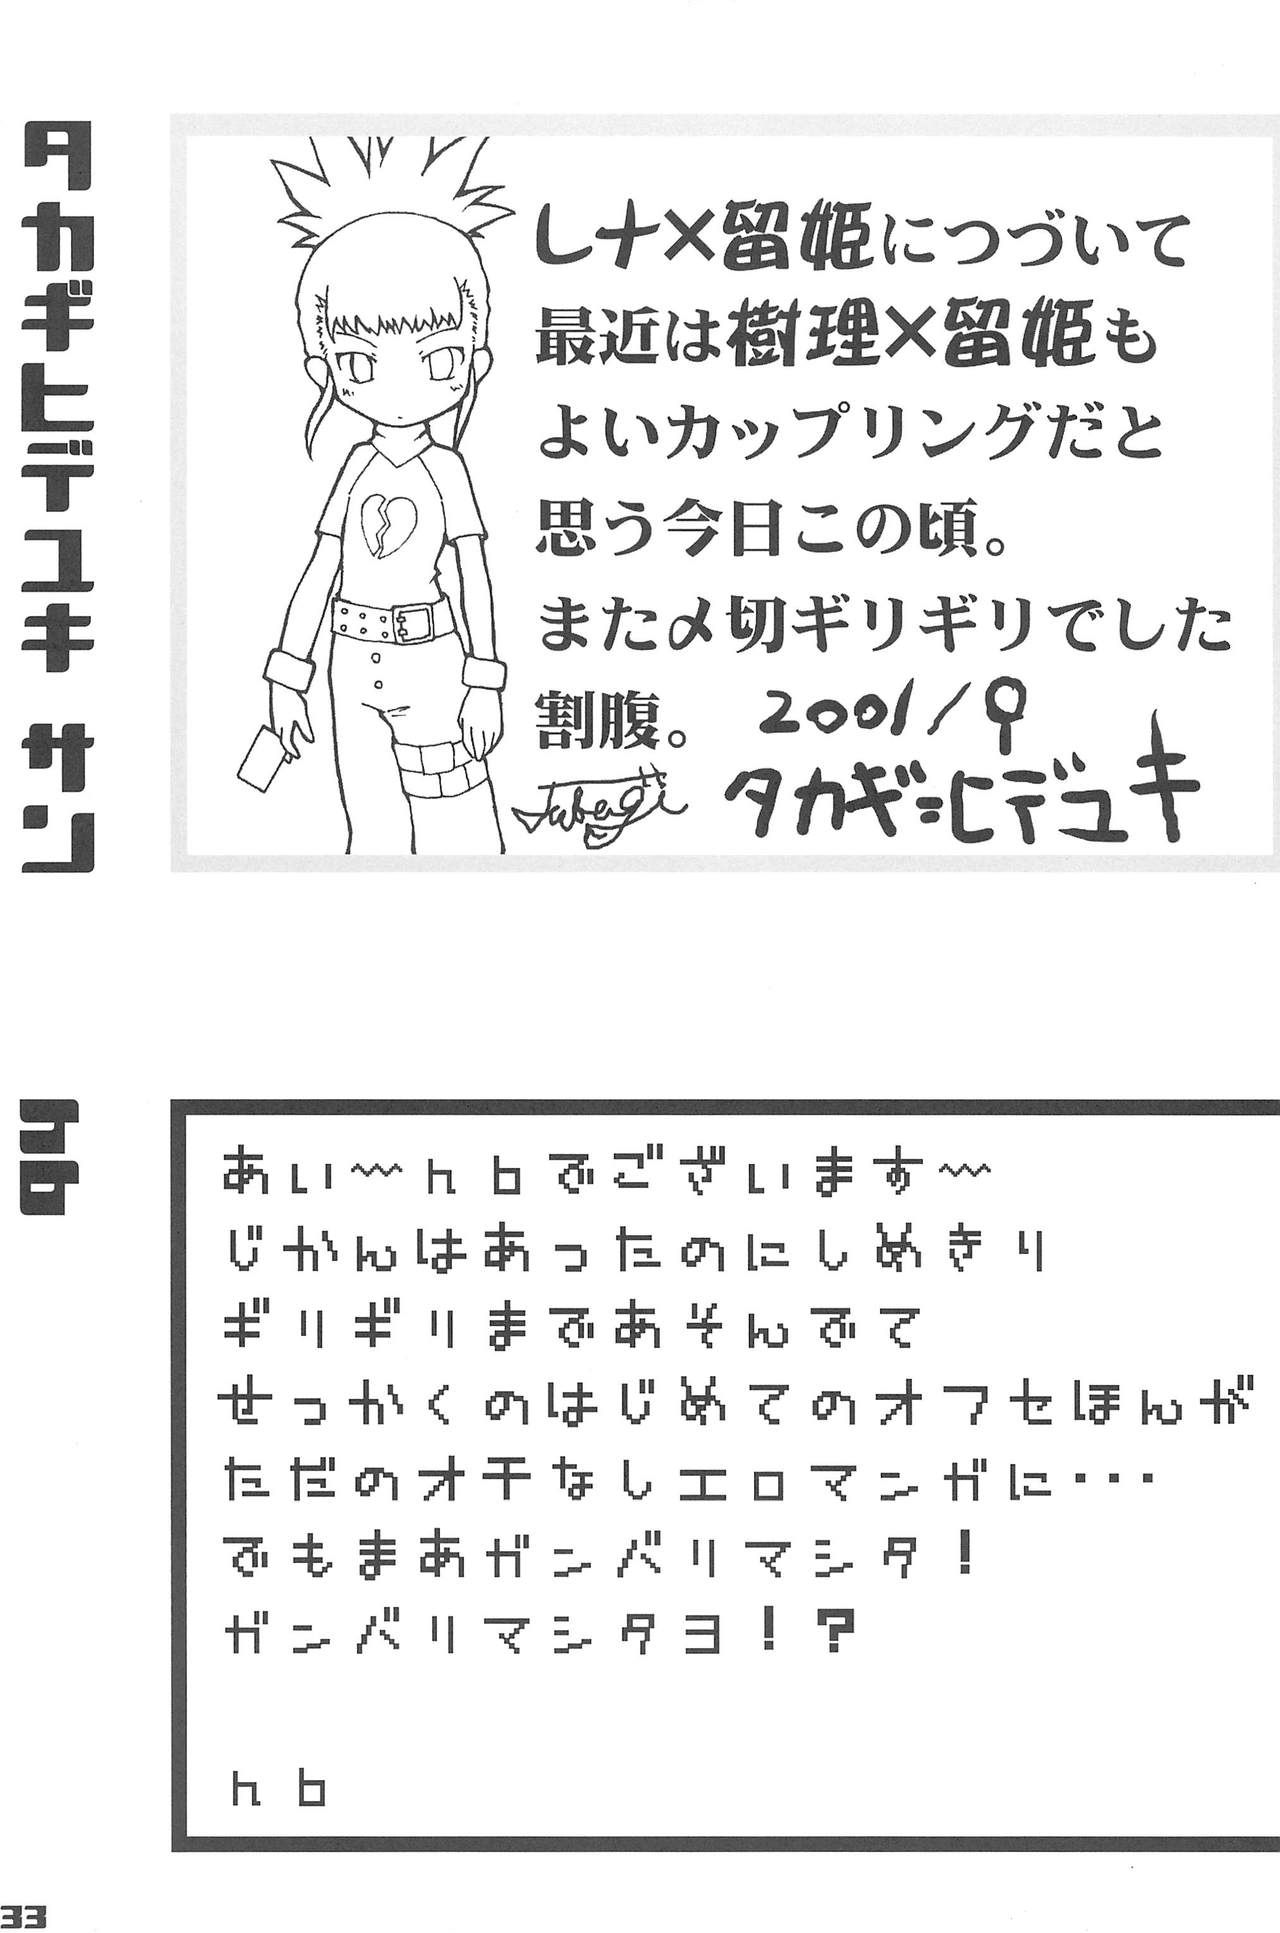 タカギヒデユキ サン
レナ×留姫につづいて
最近は樹理×留姫も
よいカップリングだと
思う今日この頃。
また〆切ギリギリでした
割腹。 2001/♀
Takagi タカギ=ヒデユキ
hb
あい〜hbでございます〜
じかんはあったのにしめきり
ギリギリまであそんでて
せっかくのはじめてのオフセほんが
ただのオチなしエロマンガに・・・
でもまあガンバリマシタ!
ガンバリマシタヨ!?
hb
33